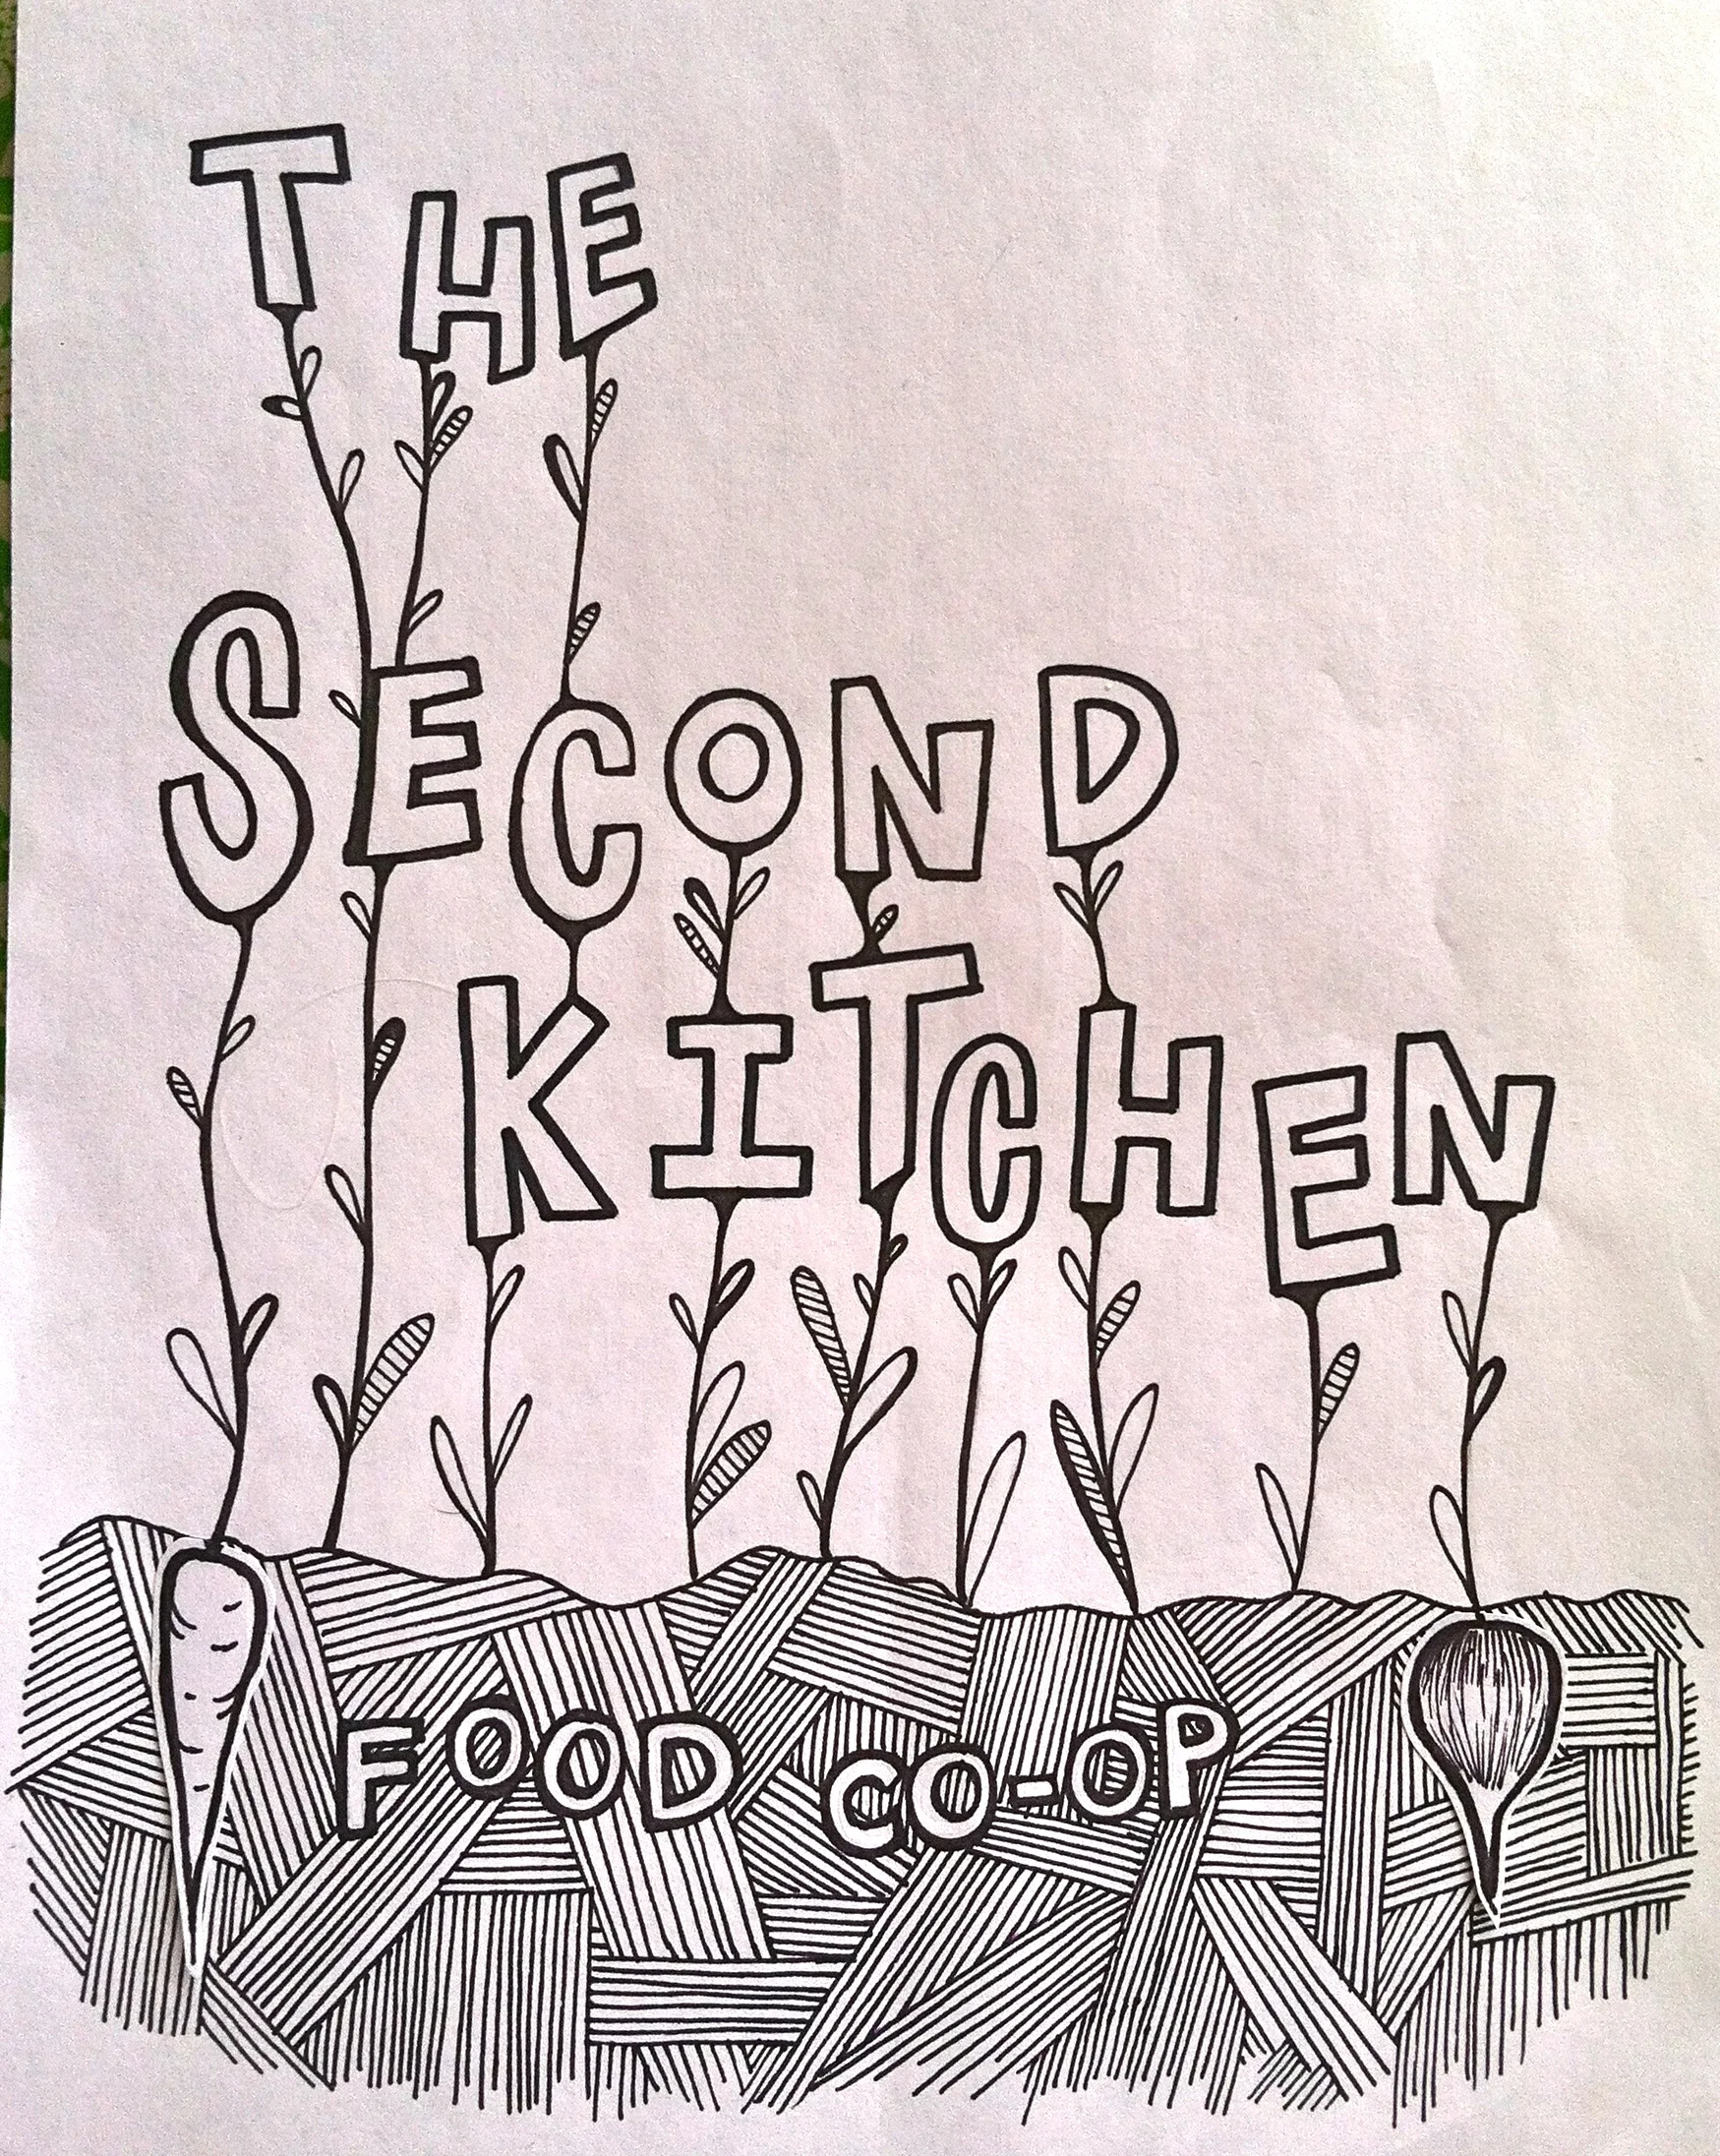 THE
SECOND
KITCHEN
FOOD CO-OP